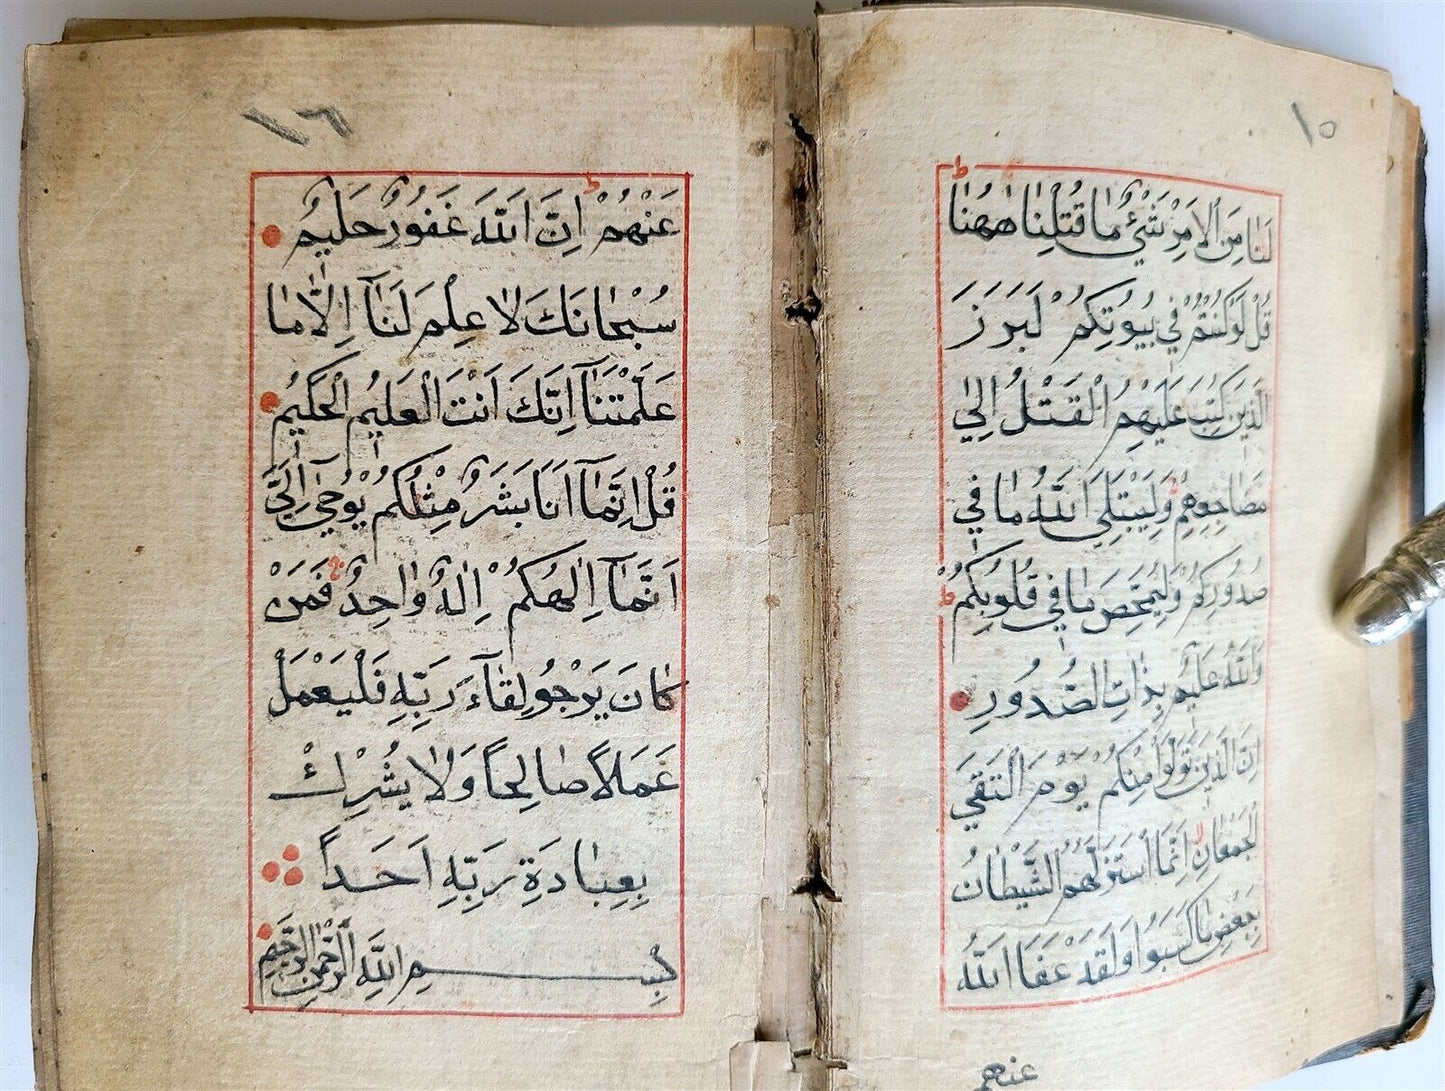 ١٥
لَنَا مِنَ الْاَمْرِ شَيْءٌ مَا قُتِلْنَا هٰهُنَا ط
قُلْ لَوْ كُنْتُمْ فِي بُيُوتِكُمْ لَبَرَزَ
الَّذِينَ كُتِبَ عَلَيْهِمُ الْقَتْلُ اِلٰي
مَضَاجِعِهِمْ وَلِيَبْتَلِيَ اللّٰهُ مَا فِي
صُدُورِكُمْ وَلِيُمَحِّصَ مَا فِي قُلُوبِكُمْ ط
وَاللّٰهُ عَلِيمٌ بِذَاتِ الصُّدُورِ
اِنَّ الَّذِينَ تَوَلَّوْا مِنْكُمْ يَوْمَ الْتَقَي
الْجَمْعَانِ اِنَّمَا اسْتَزَلَّهُمُ الشَّيْطَانُ
بِبَعْضِ مَا كَسَبُوا وَلَقَدْ عَفَا اللّٰهُ
عنهم
١٦
عَنْهُمْ ط اِنَّ اللّٰهَ غَفُورٌ حَلِيمٌ
سُبْحَانَكَ لَا عِلْمَ لَنَآ اِلَّا مَا
عَلَّمْتَنَآ اِنَّكَ اَنْتَ الْعَلِيمُ الْحَكِيمُ
قُلْ اِنَّمَآ اَنَا بَشَرٌ مِثْلُكُمْ يُوْحٰي اِلَيَّ
اَنَّمَآ اِلٰهُكُمْ اِلٰهٌ وَاحِدٌ فَمَنْ
كَانَ يَرْجُو لِقَآءَ رَبِّهِ فَلْيَعْمَلْ
عَمَلاً صَالِحاً وَلَا يُشْرِكْ
بِعِبَادَةِ رَبِّهِ اَحَداً
بِسْمِ اللّٰهِ الرَّحْمٰنِ الرَّحِيمِ